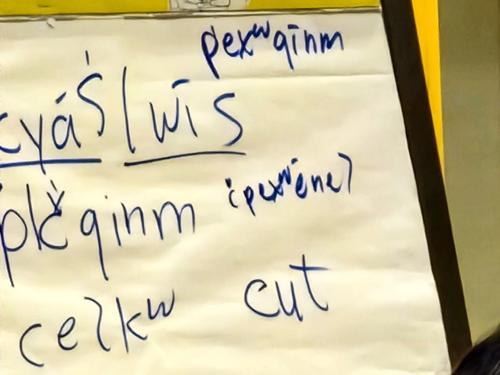 pexʷqinm
cyáṡ | wīs
plč̓qinm (pexʷéneʔ
ceʔkʷ cut